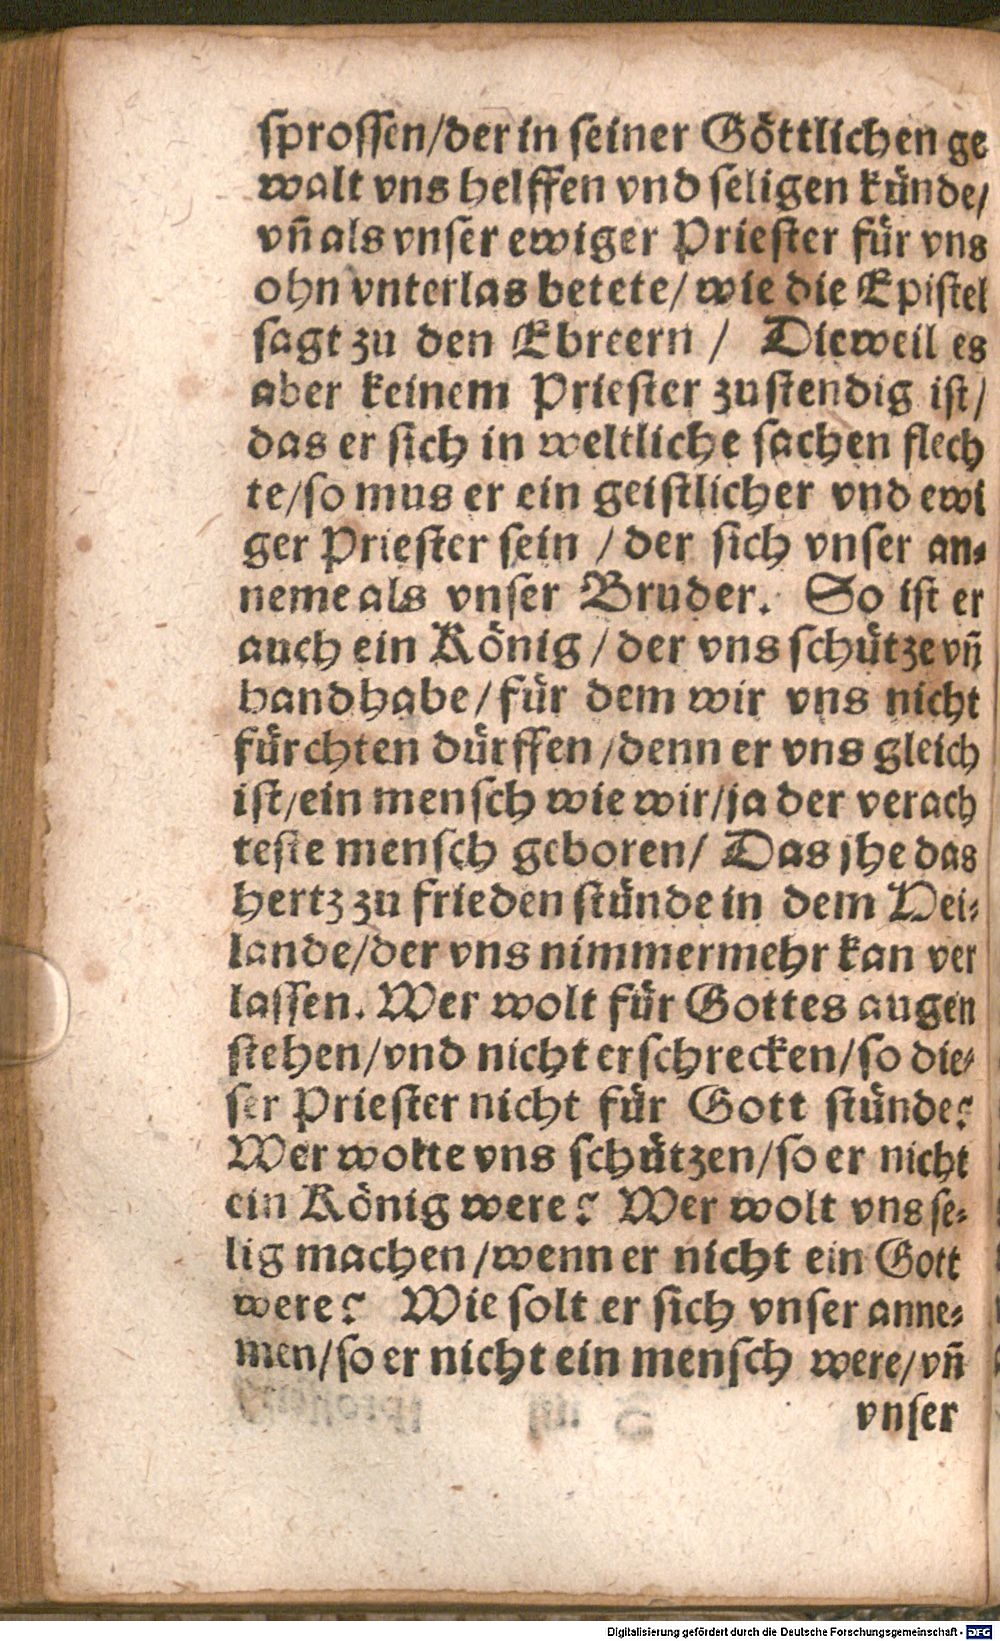 sprossen/der in seiner Göttlichen ge
walt vns helffen vnd seligen künde/
vñ als vnser ewiger Priester für vns
ohn vnterlas betete/ wie die Epistel
sagt zu den Ebreern / Dieweil es
aber keinem Priester zustendig ist/
das er sich in weltliche sachen flech
te/so mus er ein geistlicher vnd ewi
ger Priester sein / der sich vnser an-
neme als vnser Bruder. So ist er
auch ein König / der vns schütze vñ
handhabe/ für dem wir vns nicht
fürchten dürffen /denn er vns gleich
ist/ein mensch wie wir/ja der verach
teste mensch geboren/ Das jhe das
hertz zu frieden stünde in dem Hei-
lande/der vns nimmermehr kan ver
lassen. Wer wolt für Gottes augen
stehen/vnd nicht erschrecken/so die-
ser Priester nicht für Gott stünde?
Wer wolte vns schützen/so er nicht
ein König were? Wer wolt vns se-
lig machen /wenn er nicht ein Gott
were? Wie solt er sich vnser anne-
men/so er nicht ein mensch were/vñ
vnser
Digitalisierung gefördert durch die Deutsche Forschungsgemeinschaft - DFG